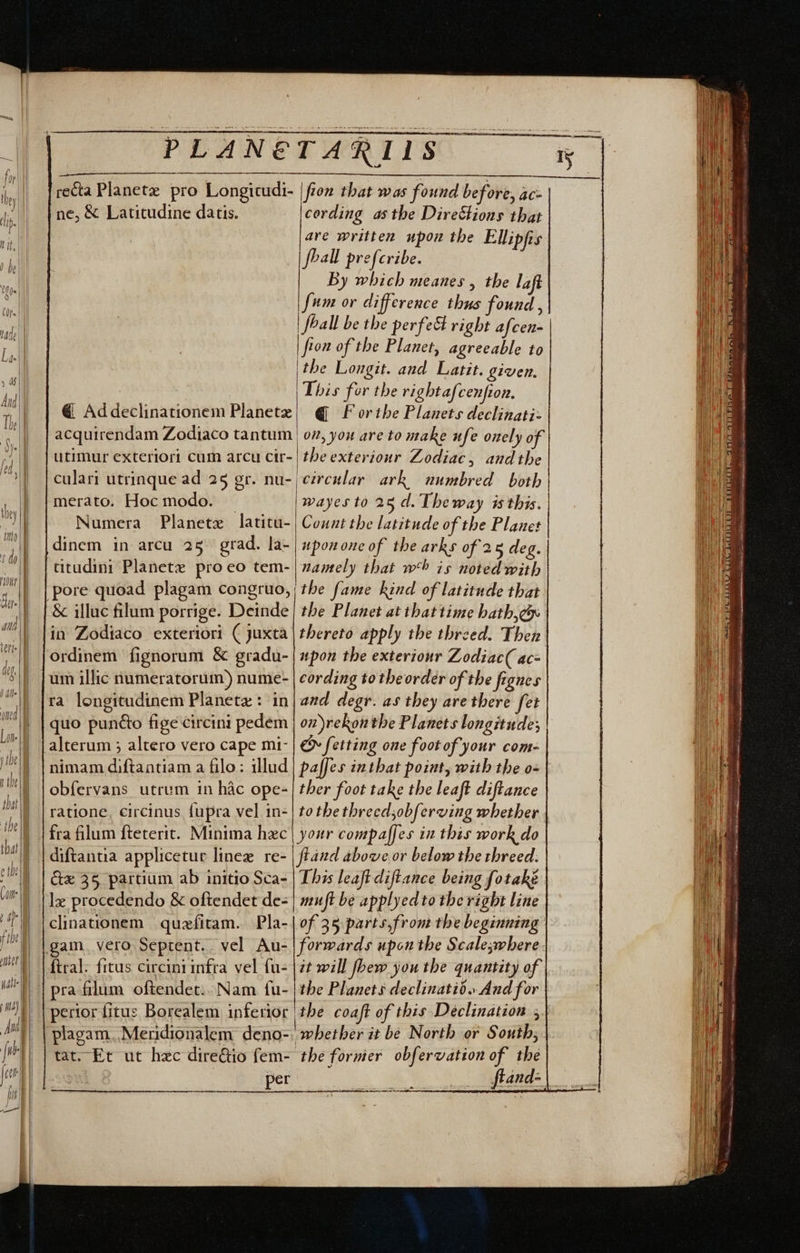 PLANETARIIS 15
recta Planetæ pro Longitudi-
ne, & Latitudine datis.
₵ Ad declinationem Planetæ
acquirendam Zodiaco tantum
utimur exteriori cum arcu cir-
culari utrinque ad 25 gr. nu-
merato. Hoc modo.
Numera Planetæ latitu-
dinem in arcu 25 grad. la-
titudini Planetæ pro eo tem-
pore quoad plagam congruo,
& illuc filum porrige. Deinde
in Zodiaco exteriori ( juxta
ordinem ſignorum & gradu-
um illic numeratorum) nume-
ra longitudinem Planetæ : in
quo puncto fige circini pedem
alterum ; altero vero cape mi-
nimam diſtantiam a filo: illud
obſervans utrum in hâc ope-
ratione circinus ſupra vel in-
fra filum ſteterit. Minima hæc
diſtantia applicetur lineæ re-
ctæ 35 partium ab initio Sca-
læ procedendo & oſtendet de-
clinationem quæſitam. Pla-
gam vero Septent. vel Au-
ſtral. ſitus circini infra vel ſu-
pra filum oſtendet. Nam ſu-
perior ſitus Borealem inferior
plagam Meridionalem deno-
tat. Et ut hæc directio ſem-
per
ſion that was found before, ac-
cording as the Directions that
are written upon the Ellipſis
ſhall preſcribe.
By which meanes , the laſt
ſum or difference thus found ,
ſhall be the perfect right aſcen-
ſion of the Planet, agreeable to
the Longit. and Latit. given.
This for the right aſcenſion.
₵ For the Planets declinati-
on, you are to make uſe onely of
the exteriour Zodiac, and the
circular ark numbred both
wayes to 25 d. The way is this.
Count the latitude of the Planet
upon one of the arks of 25 deg.
namely that wch is noted with
the ſame kind of latitude that
the Planet at that time hath, &
thereto apply the threed. Then
upon the exteriour Zodiac( ac-
cording to the order of the ſignes
and degr. as they are there ſet
on)rekon the Planets longitude;
& ſetting one foot of your com-
paſſes in that point, with the o-
ther foot take the leaſt diſtance
to the threed,obſerving whether
your compaſſes in this work do
ſtand above or below the threed.
This leaſt diſtance being ſo také
muſt be applyed to the right line
of 35 parts,from the beginning
forwards upon the Scale;where
it will ſhew you the quantity of
the Planets declinatiō. And for
the coaſt of this Declination ,
whether it be North or South,
the former obſervation of the
ſtand-